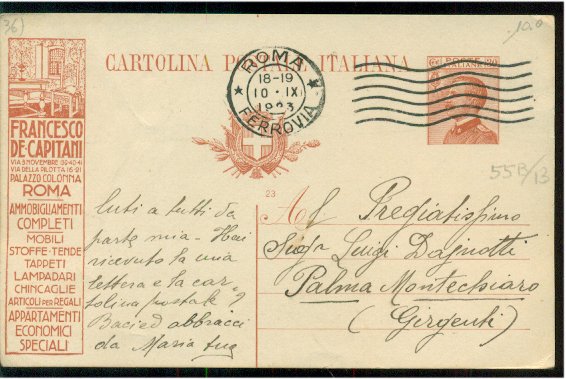 36)
10.0
CARTOLINA PO ITALIANA
ROMA
18-19
10 · IX
1923
FERROVIA
POSTE
ITALIANE
FRANCESCO
DE·CAPITANI
VIA 3 NOVEMBRE
VIA DELLA PILOTTA 16-21
PALAZZO COLONNA
ROMA
AMMOBIGLIAMENTI
COMPLETI
MOBILI
STOFFE·TENDE
TAPPETI
LAMPADARI
CHINCAGLIE
ARTICOLI PER REGALI
APPARTAMENTI
ECONOMICI
SPECIALI
55B/13
23
luti a tutti da
parte mia - Hai
ricevuto la mia
lettera e la car-
tolina postale?
Baci ed abbracci
da Maria tua
Al Pregiatissimo
Sigr Luigi
Palma Montechiaro
(Girgenti)